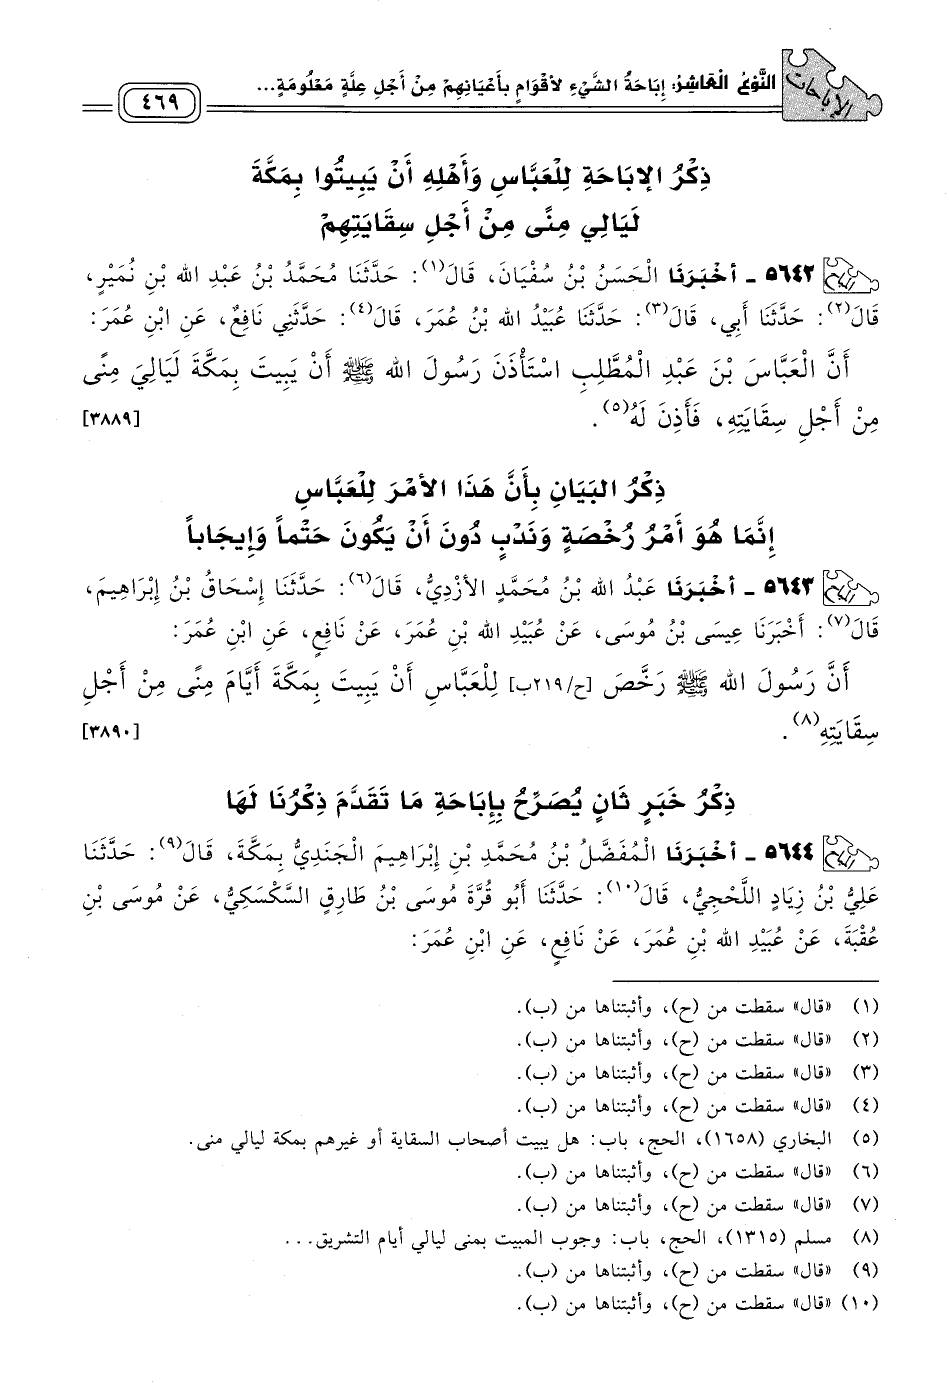 الإباحات
النَّوْعُ الْعَاشِرُ: إِبَاحَةُ الشَّيْءِ لأَقْوَامٍ بأَعْيَانِهِمْ مِنْ أَجْلِ عِلَّةٍ مَعْلُومَةٍ...
٤٦٩
ذِكْرُ الإِبَاحَةِ لِلْعَبَّاسِ وَأَهْلِهِ أَنْ يَبِيتُوا بِمَكَّةَ
لَيَالِي مِنًى مِنْ أَجْلِ سِقَايَتِهِمْ
٥٦٤٢ - أَخْبَرَنَا الْحَسَنُ بْنُ سُفْيَانَ، قَالَ(١): حَدَّثَنَا مُحَمَّدُ بْنُ عَبْدِ الله بْنِ نُمَيْرٍ،
قَالَ(٢): حَدَّثَنَا أَبِي، قَالَ(٣): حَدَّثَنَا عُبَيْدُ الله بْنُ عُمَرَ، قَالَ(٤): حَدَّثَنِي نَافِعٌ، عَنِ ابْنِ عُمَرَ:
أَنَّ الْعَبَّاسَ بْنَ عَبْدِ الْمُطَّلِبِ اسْتَأْذَنَ رَسُولَ الله ﷺ أَنْ يَبِيتَ بِمَكَّةَ لَيَالِيَ مِنًى
مِنْ أَجْلِ سِقَايَتِهِ، فَأَذِنَ لَهُ(٥). [٣٨٨٩]
ذِكْرُ الْبَيَانِ بِأَنَّ هَذَا الأَمْرَ لِلْعَبَّاسِ
إِنَّمَا هُوَ أَمْرُ رُخْصَةٍ وَنَدْبٍ دُونَ أَنْ يَكُونَ حَتْماً وَإِيجَاباً
٥٦٤٣ - أَخْبَرَنَا عَبْدُ الله بْنُ مُحَمَّدٍ الأَزْدِيُّ، قَالَ(٦): حَدَّثَنَا إِسْحَاقُ بْنُ إِبْرَاهِيمَ،
قَالَ(٧): أَخْبَرَنَا عِيسَى بْنُ مُوسَى، عَنْ عُبَيْدِ الله بْنِ عُمَرَ، عَنْ نَافِعٍ، عَنِ ابْنِ عُمَرَ:
أَنَّ رَسُولَ الله ﷺ رَخَّصَ [ح/٢١٩ب] لِلْعَبَّاسِ أَنْ يَبِيتَ بِمَكَّةَ أَيَّامَ مِنًى مِنْ أَجْلِ
سِقَايَتِهِ(٨). [٣٨٩٠]
ذِكْرُ خَبَرٍ ثَانٍ يُصَرِّحُ بِإِبَاحَةِ مَا تَقَدَّمَ ذِكْرُنَا لَهَا
٥٦٤٤ - أَخْبَرَنَا الْمُفَضَّلُ بْنُ مُحَمَّدِ بْنِ إِبْرَاهِيمَ الْجَنَدِيُّ بِمَكَّةَ، قَالَ(٩): حَدَّثَنَا
عَلِيُّ بْنُ زِيَادٍ اللَّحْجِيُّ، قَالَ(١٠): حَدَّثَنَا أَبُو قُرَّةَ مُوسَى بْنُ طَارِقٍ السَّكْسَكِيُّ، عَنْ مُوسَى بْنِ
عُقْبَةَ، عَنْ عُبَيْدِ الله بْنِ عُمَرَ، عَنْ نَافِعٍ، عَنِ ابْنِ عُمَرَ:
(١) «قال» سقطت من (ح)، وأثبتناها من (ب).
(٢) «قال» سقطت من (ح)، وأثبتناها من (ب).
(٣) «قال» سقطت من (ح)، وأثبتناها من (ب).
(٤) «قال» سقطت من (ح)، وأثبتناها من (ب).
(٥) البخاري (١٦٥٨)، الحج، باب: هل يبيت أصحاب السقاية أو غيرهم بمكة ليالي منى.
(٦) «قال» سقطت من (ح)، وأثبتناها من (ب).
(٧) «قال» سقطت من (ح)، وأثبتناها من (ب).
(٨) مسلم (١٣١٥)، الحج، باب: وجوب المبيت بمنى ليالي أيام التشريق...
(٩) «قال» سقطت من (ح)، وأثبتناها من (ب).
(١٠) «قال» سقطت من (ح)، وأثبتناها من (ب).